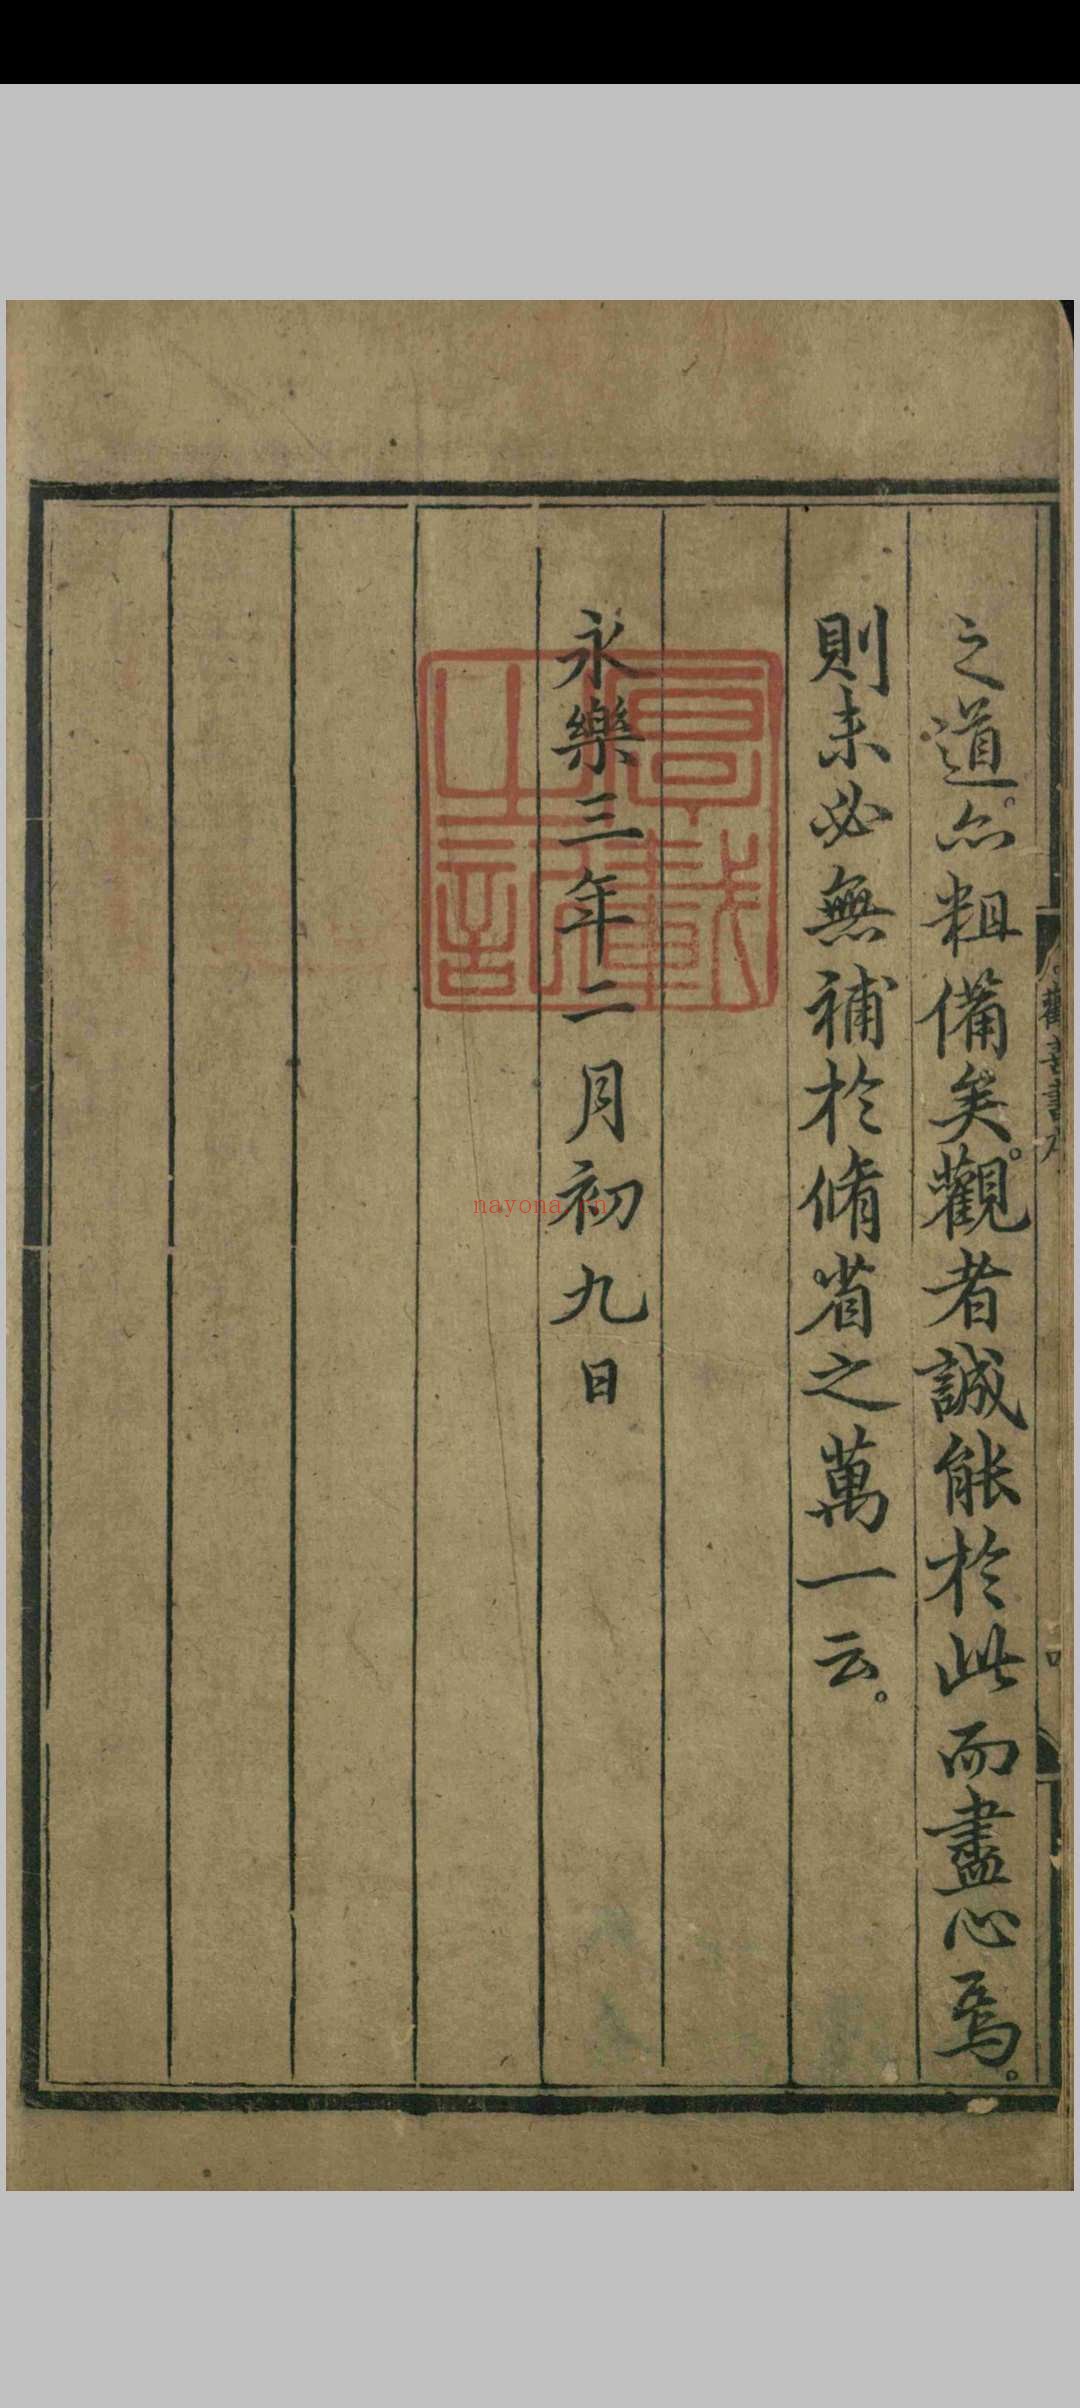 之道。亦粗備矣。觀者誠能於此而盡心焉。
則未必無補於脩省之萬一云。
永樂三年二月初九日
厚載之記
勸善書序
nayona.cn